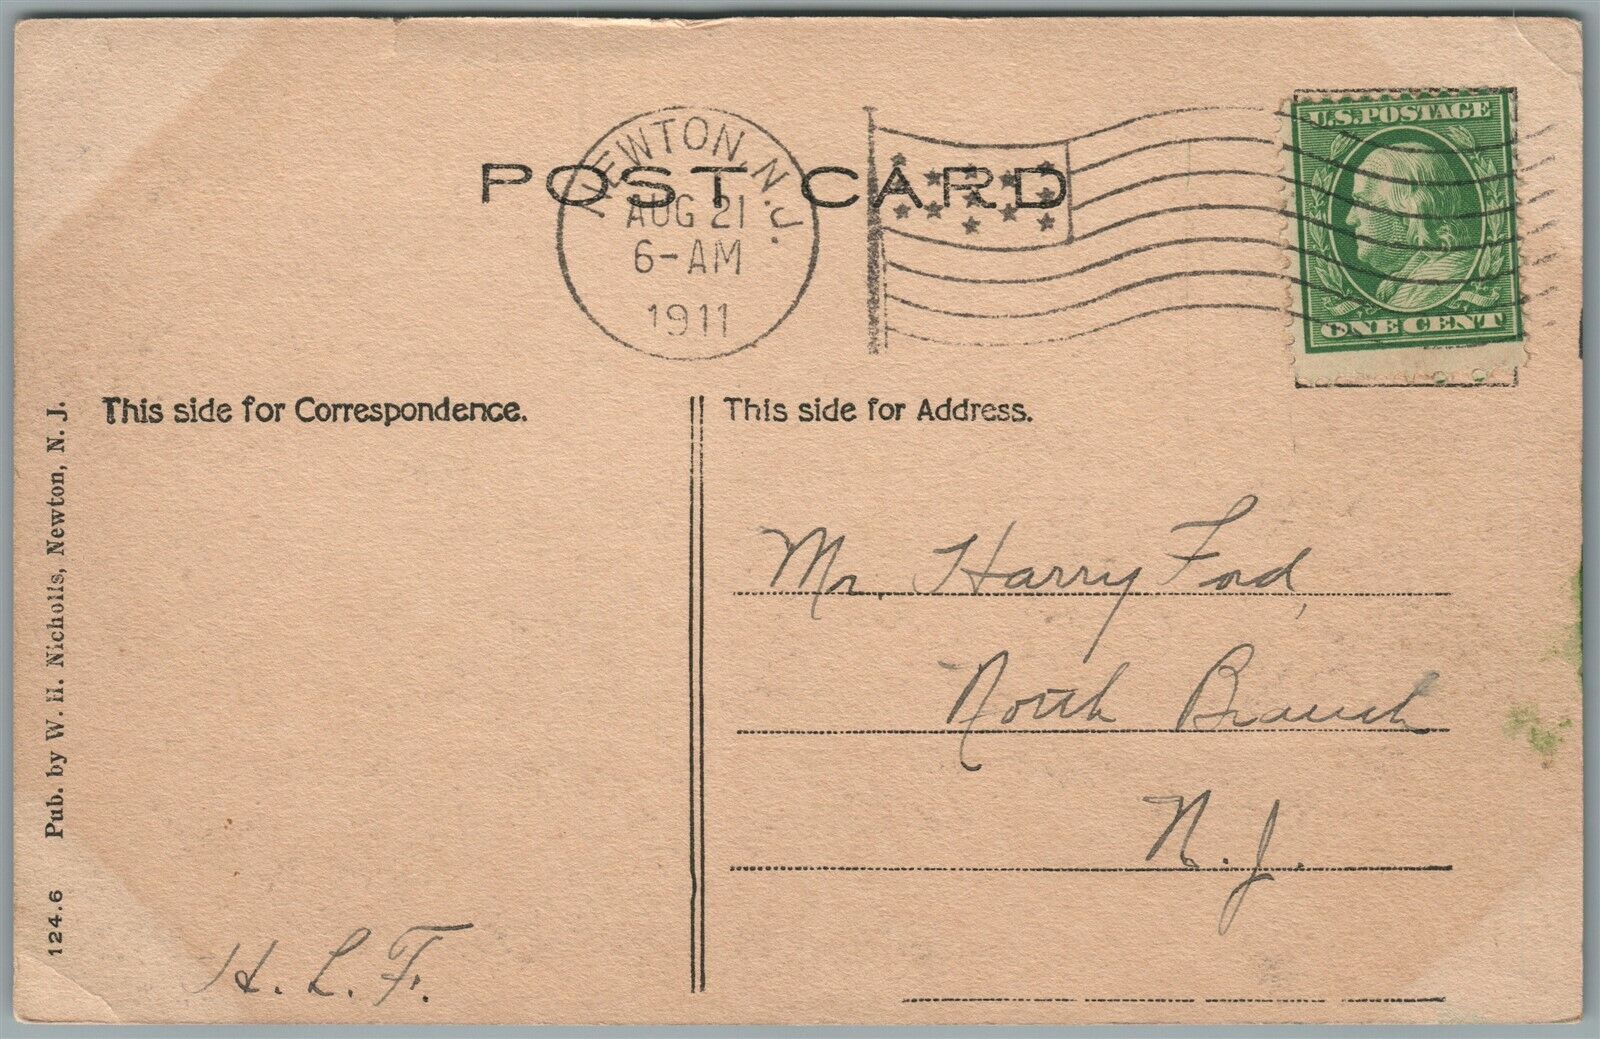 NEWTON, N.J.
AUG 21
6-AM
1911
POST CARD
U.S. POSTAGE
ONE CENT
This side for Correspondence.
This side for Address.
Mr. Harry Ford,
North Branch
N. J.
H. L. F.
124.6 Pub. by W. H. Nicholls, Newton, N. J.